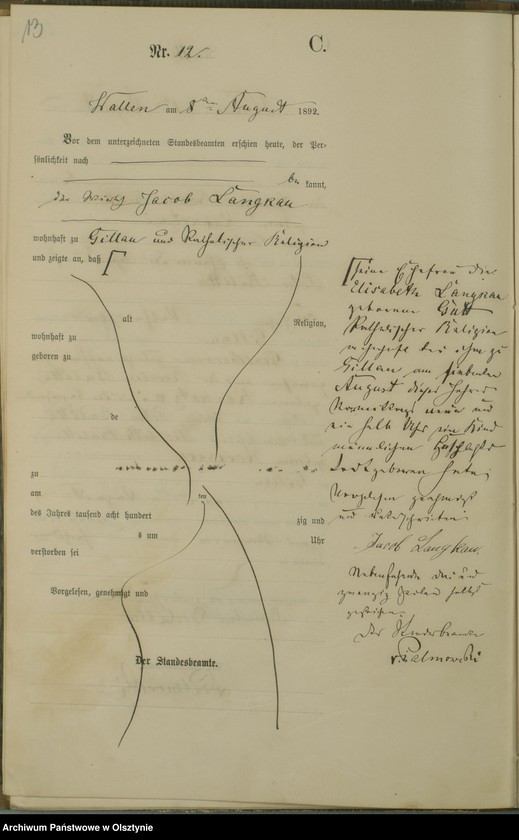 13
Nr. 12.
C.
Wallen am 8ten August 1892.
Vor dem unterzeichneten Standesbeamten erschien heute, der Per-
sönlichkeit nach
be kannt,
der Wirth Jacob Langkau
wohnhaft zu Gillau und katholischer Religion
und zeigte an, daß
alt Religion,
wohnhaft zu
geboren zu
de
zu
am ten
des Jahres tausend acht hundert zig und
s um Uhr
verstorben sei
Vorgelesen, genehmigt und
Der Standesbeamte.
seine Ehefrau die
Elisabeth Langkau
geborene
katholischer Religion
wohnhaft bei ihm zu
Gillau am siebenten
August dieses Jahres
Vormittags neun und
ein halb Uhr ein Kind
männlichen Geschlechts
todtgeboren habe,
Vorgelesen genehmigt
und unterschrieben
Jacob Langkau.
Nebenstehende drei und
zwanzig Zeilen
gestrichen.
Der Standesbeamte
v. Palmowski
Archiwum Państwowe w Olsztynie